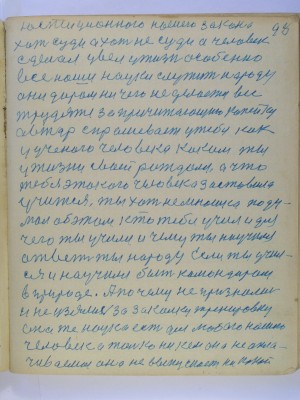 юстиционного нашего закона 95
хот суди а хот не суди а человек
сделал увел у жизни особенно
все наши науки служит народу
они даром ничего не делают все
трудятся за причитающию копейку
автар спрашивает у тебя как
у ученого человека каком ты
у жизни своей рождался, а что
тебя этакого человека заставило
учится, ты хот немножко поду-
мал об этом кто тебя учил и для
чего ты учили и чему ты научил
ответ ты народу Если ты учил-
ся и научилис быт командаром
в природе. А почему не признали
и не узялис за закалку тренировку
она же наука ест для любого нашего
человека а только ни кем она не опла-
чиваемая она не выпускает на